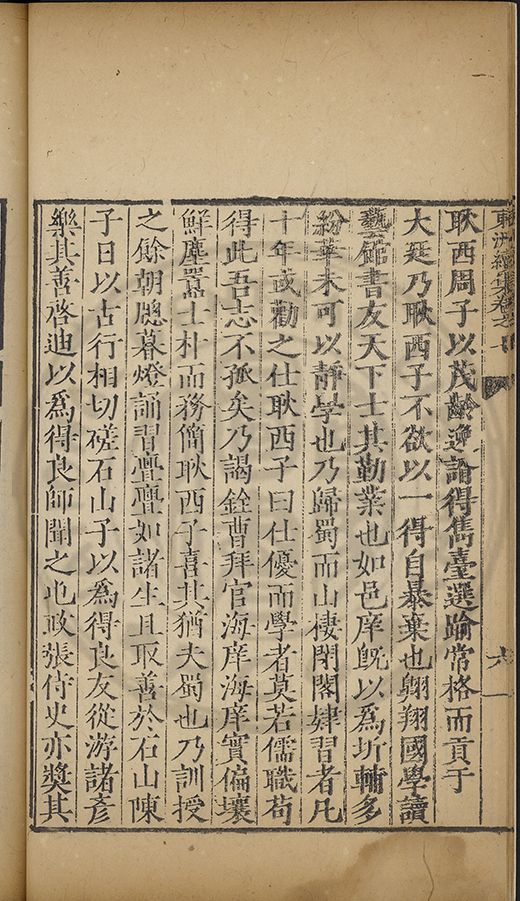 耿西周子以茂齡造詣得雋臺選踰常格而貢于
大廷乃耿西子不欲以一得自暴棄也翺翔國學讀
藝館書友天下士其勤業也如邑庠旣以爲圻輔多
紛華未可以靜學也乃歸蜀而山棲閉閣肄習者凡
十年或勸之仕耿西子曰仕優而學者莫若儒職茍
得此吾志不孤矣乃謁銓曹拜官海庠海庠實偏壤
鮮塵囂士朴而務簡耿西子喜其猶夫蜀也乃訓授
之餘朝牕暮燈誦習亹亹如諸生且取善於石山陳
子日以古行相切磋石山子以爲得良友從游諸彥
樂其善啓迪以爲得良師聞之也政張侍史亦奬其
東洲續集卷之
六